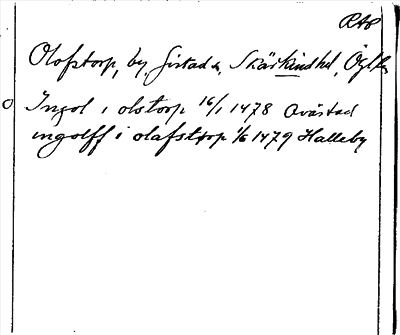 RAP
Olofstorp, by, Gistad s, Skärkinds hd, Ögl
Ingol i olstorp 16/1 1478 Avästad
ingolff i olafstorp 1/6 1479 Halleby